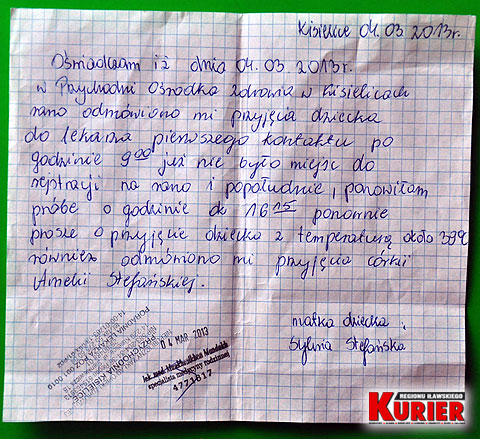 Kisielice 04.03.2013r.
Oświadczam iż dnia 04.03.2013r.
w Przychodni Ośrodka Zdrowia w Kisielicach
rano odmówiono mi przyjęcia dziecka
do lekarza pierwszego kontaktu po
godzinie 9⁰⁰ już nie było miejsc do
rejstracji na rano i popołudnie, ponowiłam
próbe o godzinie ok 16 15 ponownie
prosze o przyjęcie dziecka z temperaturą około 39°C
również odmówiono mi przyjęcia córki
Amelii Stefańskiej.
matka dziecka
Sylwia Stefańska
04 MAR 2013
specjalista medycyny rodzinnej
4771617
REGIONU IŁAWSKIEGO
KURIER